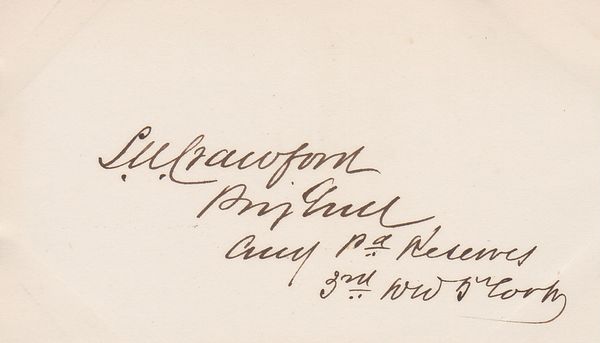 S.W. Crawford
Brig Genl
Comg Pa Reserves
3rd Div 5 Corps